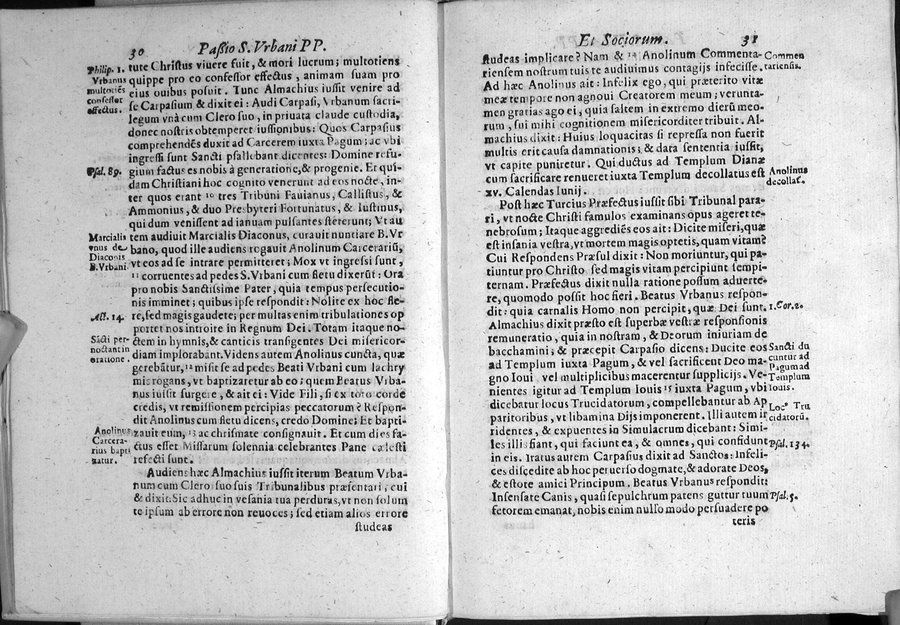 30 Paßio S. Vrbani PP.
Philip. 1.
Vrbanus
multotiēs
confessor
effectus.
tute Christus viuere fuit, & mori lucrum; multotiens
quippe pro eo confessor effectus, animam suam pro
eius ouibus posuit. Tunc Almachius iussit venire ad
se Carpasium & dixit ei: Audi Carpasi, Vrbanum sacri-
legum vnà cum Clero suo, in priuata claude custodia,
donec nostris obtemperet iussionibus: Quos Carpasius
comprehendēs duxit ad Carcerem iuxta Pagum; ac vbi
ingressi sunt Sancti psallebant dicentes: Domine refu-
Psal. 89.
gium factus es nobis à generatione, & progenie. Et qui-
dam Christiani hoc cognito venerunt ad eos nocte, in-
ter quos erant 10 tres Tribuni Fauianus, Callistus, &
Ammonius, & duo Presbyteri Fortunatus, & Iustinus,
qui dum venissent ad ianuam pulsantes steterunt; Vt au
Marcialis
vnus de
Diaconis
B. Vrbani
tem audiuit Marcialis Diaconus, curauit nuntiare B. Vr
bano, quod ille audiens rogauit Anolinum Carcerariū,
vt eos ad se intrare permitteret; Mox vt ingressi sunt,
11 corruentes ad pedes S. Vrbani cum fletu dixerūt: Ora
pro nobis Sanctissime Pater, quia tempus persecutio-
nis imminet; quibus ipse respondit: Nolite ex hoc fle-
Act. 14.
re, sed magis gaudete; per multas enim tribulationes op
portet nos introire in Regnum Dei. Totam itaque no-
Sācti per-
noctant in
oratione.
ctem in hymnis, & canticis transigentes Dei misericor-
diam implorabant. Videns autem Anolinus cuncta, quæ
gerebātur, 12 misit se ad pedes Beati Vrbani cum lachry
mis rogans, vt baptizaretur ab eo; quem Beatus Vrba-
nus iussit surgere, & ait ei: Vide Fili, si ex toto corde
credis, vt remissionem percipias peccatorum? Respon-
dit Anolinus cum fletu dicens, credo Domine; Et bapti-
Anolinus
Carcera-
rius bapti
zatur.
zauit eum, 13 ac chrismate consignauit. Et cum dies fa-
ctus esset Missarum solennia celebrantes Pane cælesti
refecti sunt.
Audiens hæc Almachius iussit iterum Beatum Vrba-
num cum Clero suo suis Tribunalibus præsentari, cui
& dixit: Sic adhuc in vesania tua perduras, vt non solum
te ipsum ab errore non reuoces; sed etiam alios errore
studeas
Et Sociorum. 31
studeas implicare? Nam & 14 Anolinum Commenta-
Commen
tariensis.
riensem nostrum tuis te audiuimus contagijs infecisse.
Ad hæc Anolinus ait: Infelix ego, qui præterito vitæ
meæ tempore non agnoui Creatorem meum; verunta-
men gratias ago ei, quia saltem in extremo dierū meo-
rum, sui mihi cognitionem misericorditer tribuit. Al-
machius dixit: Huius loquacitas si repressa non fuerit
multis erit causa damnationis; & data sententia iussit,
vt capite puniretur. Qui ductus ad Templum Dianæ
cum sacrificare renueret iuxta Templum decollatus est
Anolinus
decollat'.
xv. Calendas Iunij.
Post hæc Turcius Præfectus iussit sibi Tribunal para-
ri, vt nocte Christi famulos examinans opus ageret te-
nebrosum; Itaque aggrediēs eos ait: Dicite miseri, quæ
est insania vestra, vt mortem magis optetis, quam vitam?
Cui Respondens Præsul dixit: Non moriuntur, qui pa-
tiuntur pro Christo sed magis vitam percipiunt sempi-
ternam. Præfectus dixit nulla ratione possum aduerte-
re, quomodo possit hoc fieri. Beatus Vrbanus respon-
dit: quia carnalis Homo non percipit, quæ Dei sunt.
1. Cor. 2.
Almachius dixit præsto est superbæ vestræ responsionis
remuneratio, quia in nostram, & Deorum iniuriam de
bacchamini; & præcepit Carpasio dicens: Ducite eos
Sancti du
cuntur ad
Pagum ad
Templum
Iouis.
ad Templum iuxta Pagum, & vel sacrificent Deo ma-
gno Ioui vel multiplicibus macerentur supplicijs. Ve-
nientes igitur ad Templum Iouis 15 iuxta Pagum, vbi
dicebatur locus Trucidatorum, compellebantur ab Ap
Loc' Tru
cidatorū.
paritoribus, vt libamina Dijs imponerent. Illi autem ir
ridentes, & expuentes in Simulacrum dicebant: Simi-
les illis fiant, qui faciunt ea, & omnes, qui confidunt
Psal. 134.
in eis. Iratus autem Carpasius dixit ad Sanctos: Infeli-
ces discedite ab hoc peruerso dogmate, & adorate Deos,
& estote amici Principum. Beatus Vrbanus respondit:
Insensate Canis, quasi sepulchrum patens guttur tuum
Psal. 5.
fetorem emanat, nobis enim nullo modo persuadere po
teris